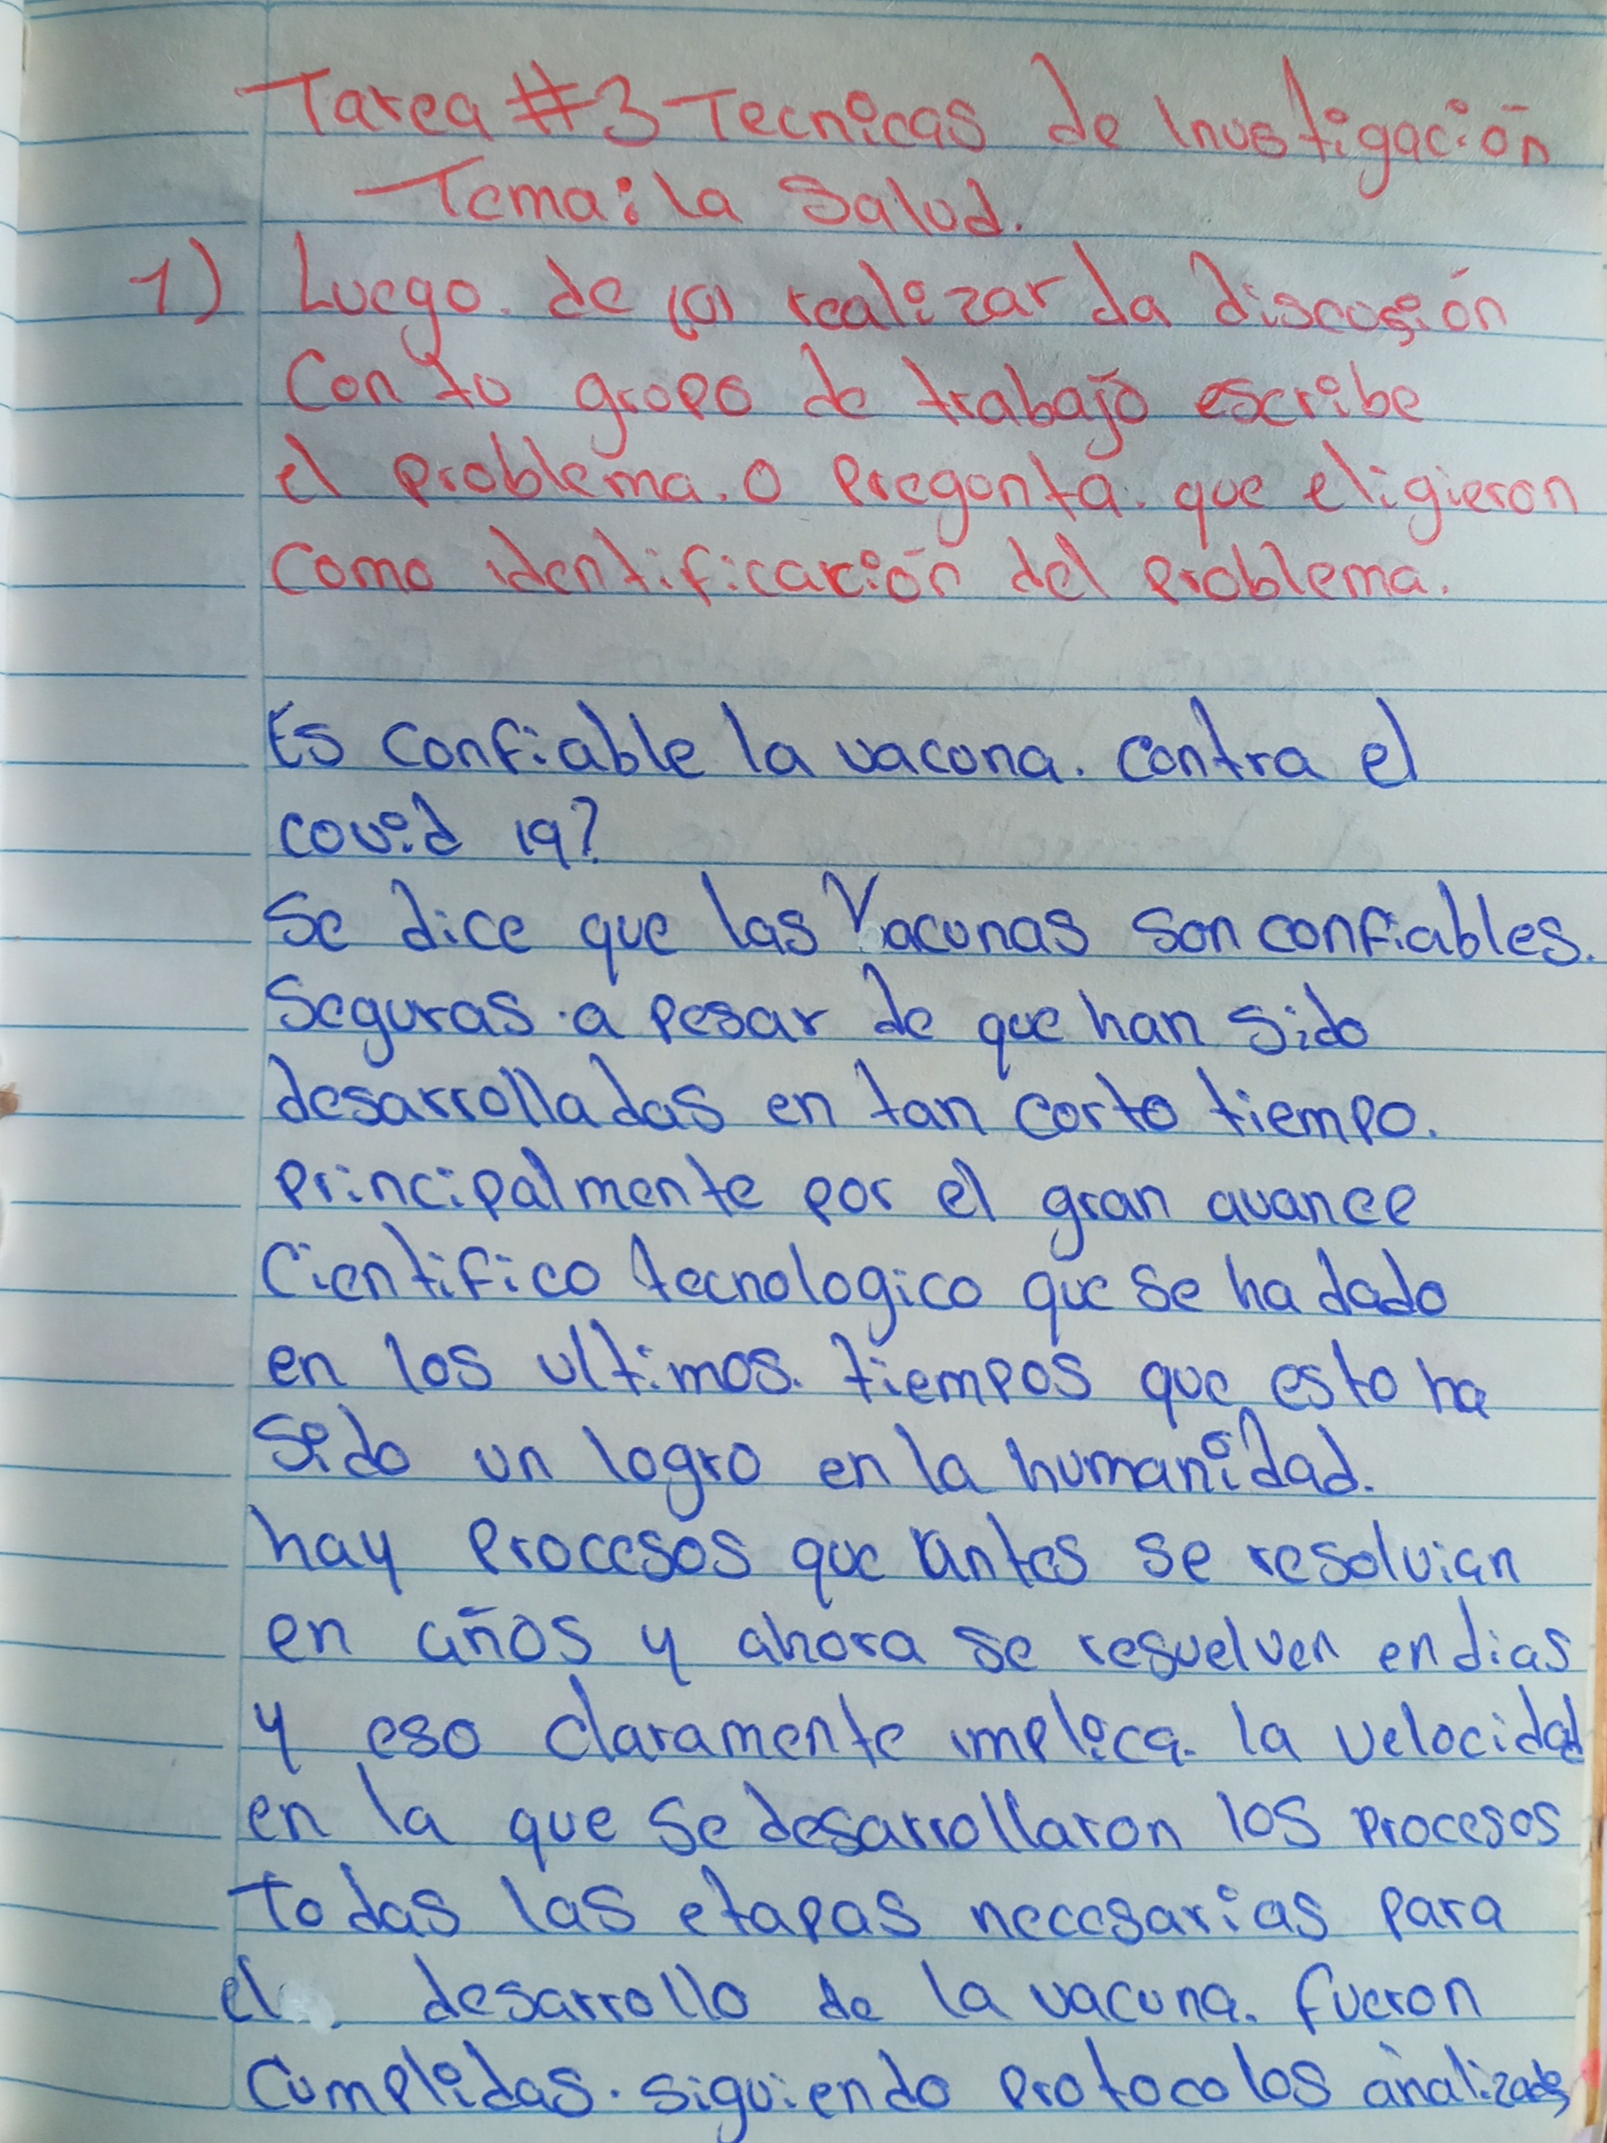 Tarea #3 Tecnicas de Investigación
Tema: la Salud.
1) Luego de realizar da discusión
Con tu grupo de trabajo escribe
el problema. o Pregunta. que eligieron
Como identificación del problema.
Es confiable la vacuna. contra el
covid 19?
Se dice que las Vacunas son confiables.
Seguras. a pesar de que han sido
desarrolladas en tan corto tiempo.
Principalmente por el gran avance
Cientifico tecnologico que se ha dado
en los ultimos. tiempos que esto ha
Sido un logro en la humanidad.
hay Procesos que antes se resolvian
en años y ahora se resuelven en dias
y eso claramente implica. la velocidad
en la que Se desarrollaron los Procesos
Todas las etapas necesarias para
el desarrollo de la vacuna. fueron
Cumplidas. siguiendo Protocolos analizados